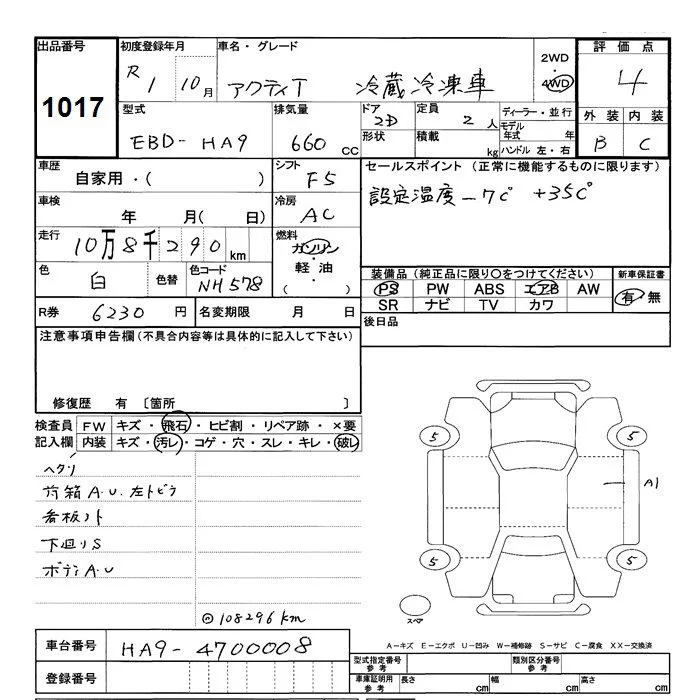 出品番号 初度登録年月 車名・グレード 2WD・4WD 評価点
1017 R 1 10月 アクティT 冷蔵冷凍車 4
型式 排気量 ドア 定員 ディーラー・並行 外装 内装
EBD- HA9 660 CC 2D 2人 モデル年式 年 B C
形状 積載 kg ハンドル 左・右
車歴 シフト セールスポイント (正常に機能するものに限ります)
自家用・( ) F5 設定温度 -7℃ +35℃
車検 冷房
年 月( 日) AC
走行 燃料
10万8千290km ガソリン・軽油・( )
色 色替 色コード 装備品 (純正品に限り〇をつけてください) 新車保証書
白 NH578 PS PW ABS エアB AW 有・無
SR ナビ TV カワ
R券 6230円 名変期限 月 日 後日品
注意事項申告欄(不具合内容等は具体的に記入して下さい)
修復歴 有 〔箇所 〕
検査員 FW キズ・飛石・ヒビ割・リペア跡・×要
記入欄 内装 キズ・汚レ・コゲ・穴・スレ・キレ・破レ
ヘタリ
荷箱A.U.左トビラ
看板ノト
下回りS
ボディA.U
5 5
A1
5 5
スペア
◎108296km
A-キズ E-エクボ U-凹み W-補修跡 S-サビ C-腐食 XX-交換済
車台番号 HA9-4700008
型式指定番号 参考 類別区分番号 参考
登録番号
車庫証明用 参考 長さ cm 幅 cm 高さ cm